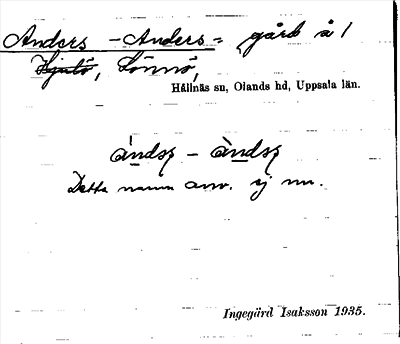 Anders - Anders = gård å /
Hjulö, Lönnö,
Hållnäs sn, Olands hd, Uppsala län.
ándsz - àndsz
Detta namn anv. ej nu.
Ingegärd Isaksson 1935.